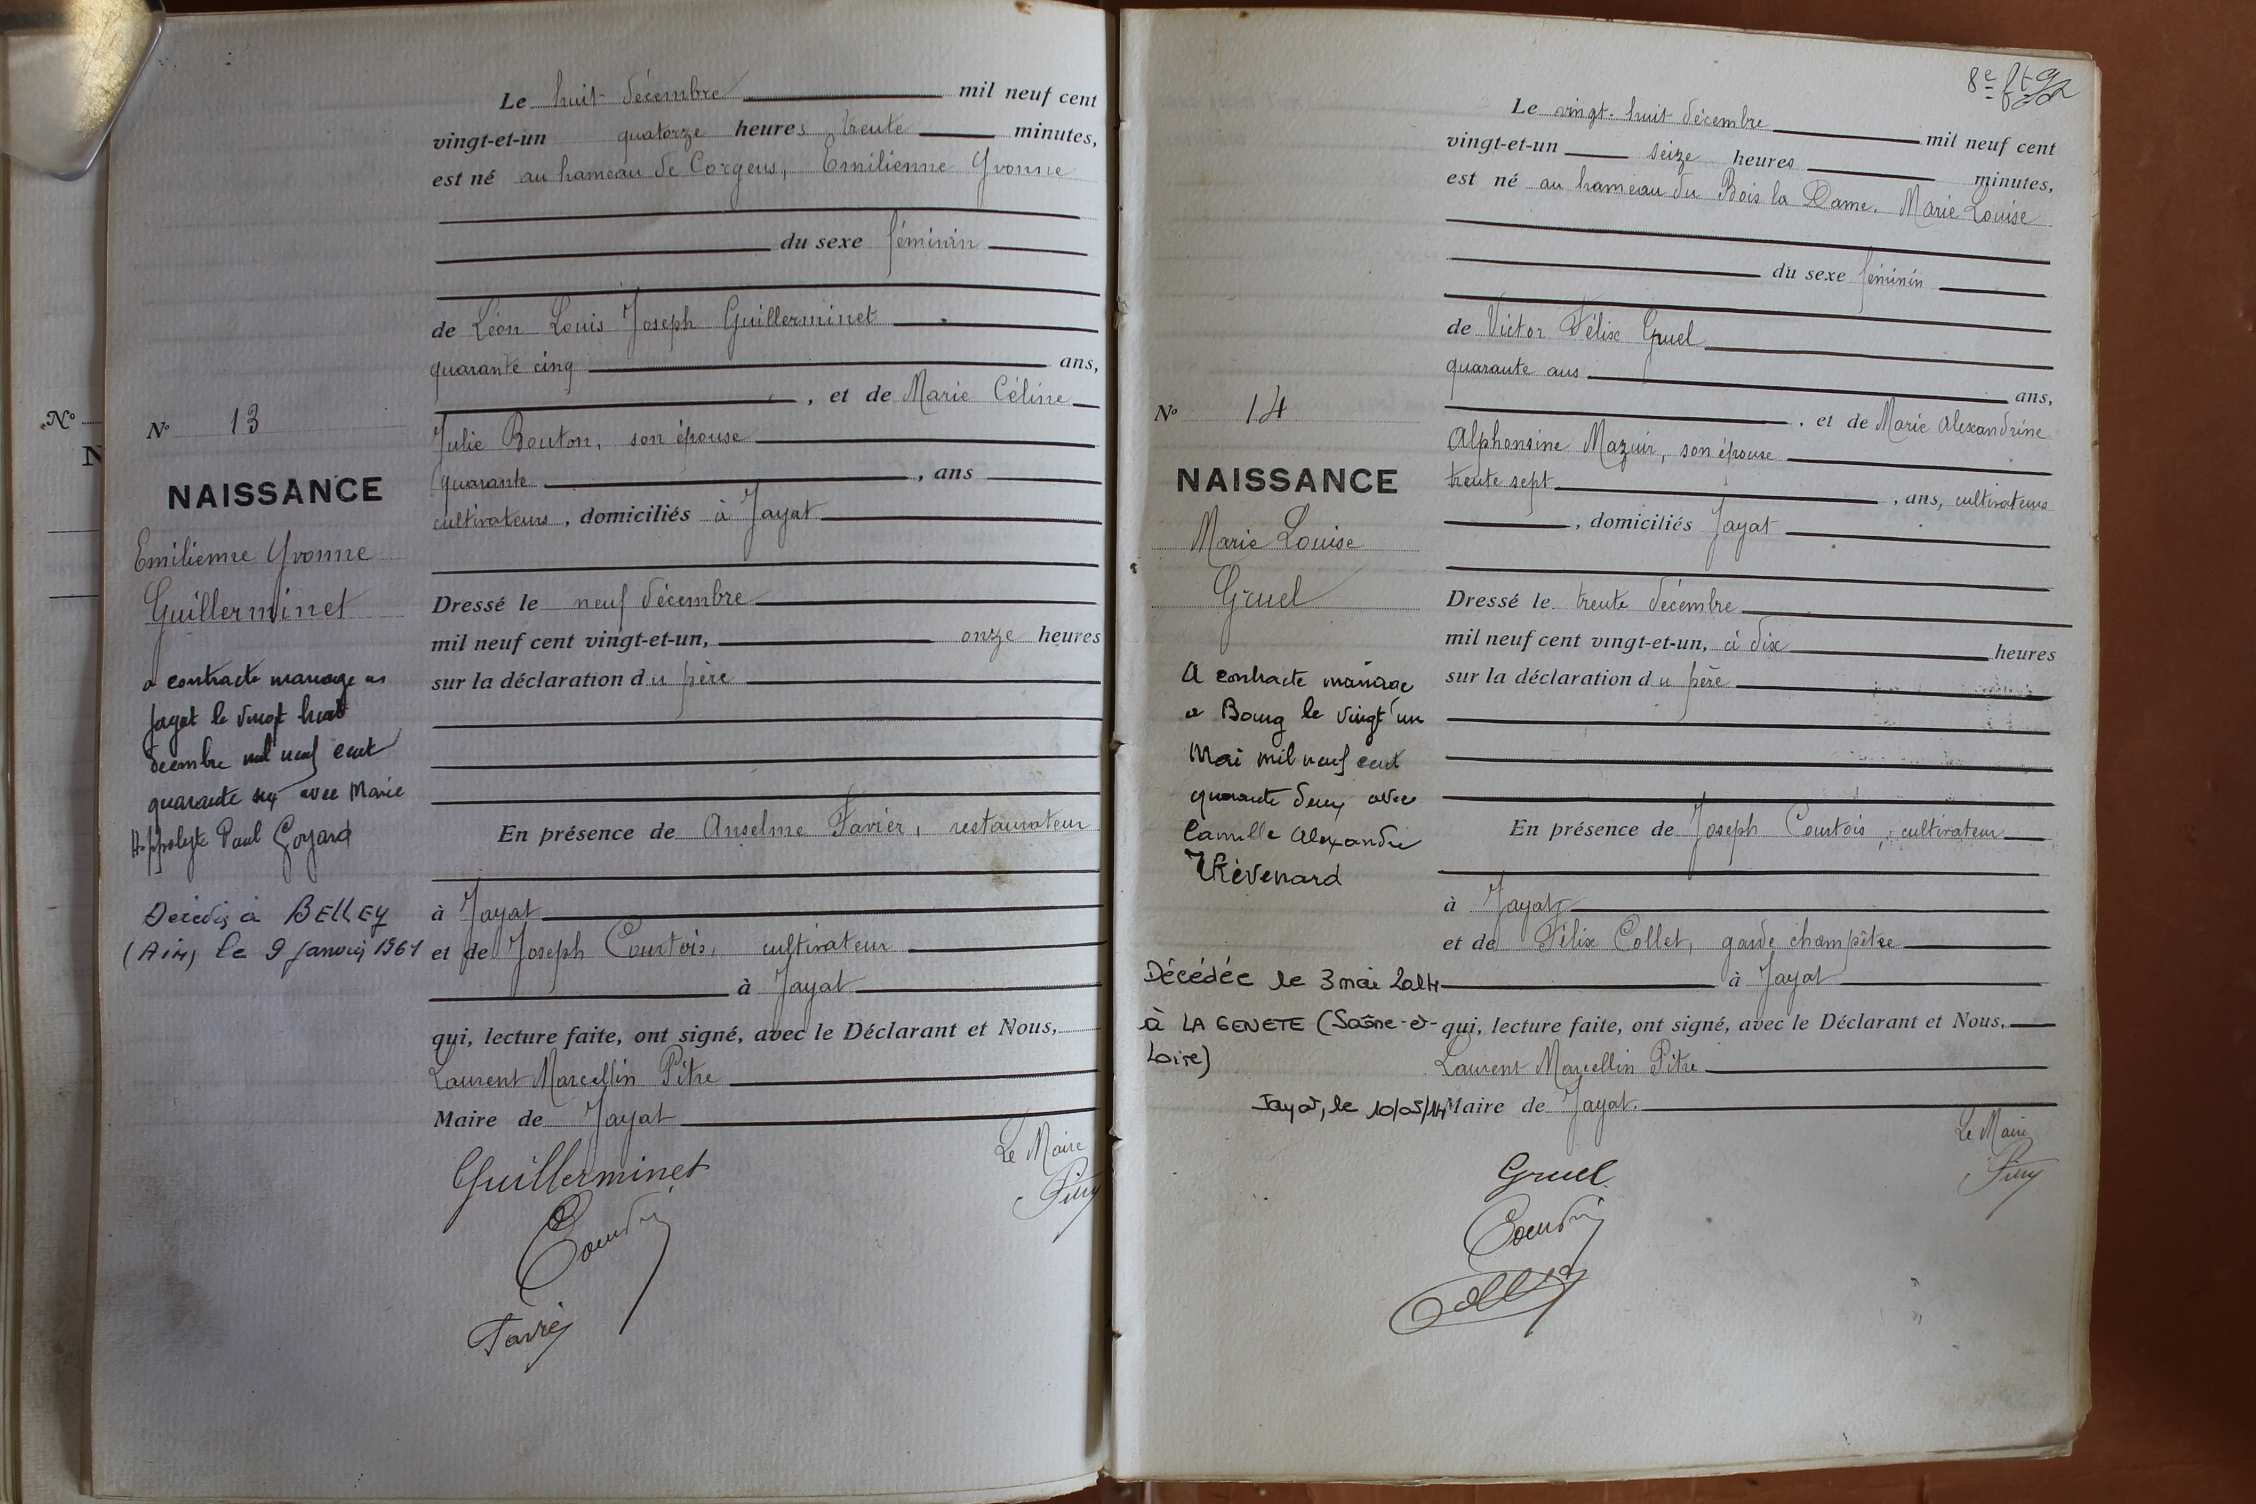 Le huit décembre mil neuf cent
vingt-et-un quatorze heures trente minutes,
est né au hameau de Corgeus, Emilienne Yvonne
du sexe féminin
de Léon Louis Joseph Guillerminet
quarante cinq ans,
, et de Marie Céline
Julie Bouton, son épouse
quarante , ans
cultivateurs, domiciliés à Jayat
Dressé le neuf décembre
mil neuf cent vingt-et-un, onze heures
sur la déclaration du père
En présence de Anselme Favier, restaurateur
à Jayat
et de Joseph Courtois, cultivateur
à Jayat
qui, lecture faite, ont signé, avec le Déclarant et Nous,
Laurent Marcellin Pitre
Maire de Jayat
Le Maire
Guillerminet
Favier
No
N
No 13
NAISSANCE
Emilienne Yvonne
Guillerminet
a contracté mariage à
Jayat le vingt huit
décembre mil neuf cent
quarante six avec Marie
Hippolyte Paul Goyard
Décédée à BELLEY
(Ain) le 9 janvier 1961
8e ft
Le vingt-huit décembre mil neuf cent
vingt-et-un seize heures minutes,
est né au hameau du Bois la Dame, Marie Louise
du sexe féminin
de Victor Félix Gruel
quarante ans ans,
, et de Marie Alexandrine
Alphonsine Mazuir, son épouse
trente sept , ans, cultivateurs
, domiciliés Jayat
Dressé le trente décembre
mil neuf cent vingt-et-un, à dix heures
sur la déclaration du père
En présence de Joseph Courtois, cultivateur
à Jayat
et de Félix Collet, garde champêtre
à Jayat
qui, lecture faite, ont signé, avec le Déclarant et Nous,
Laurent Marcellin Pitre
Maire de Jayat.
Le Maire
Gruel
No 14
NAISSANCE
Marie Louise
Gruel
A contracté mariage
à Bourg le vingt un
Mai mil neuf cent
quarante deux avec
Camille Alexandre
Thévenard
Décédée le 3 mai 2014
à LA GENETE (Saône-et-
Loire)
Jayat, le 10/05/14